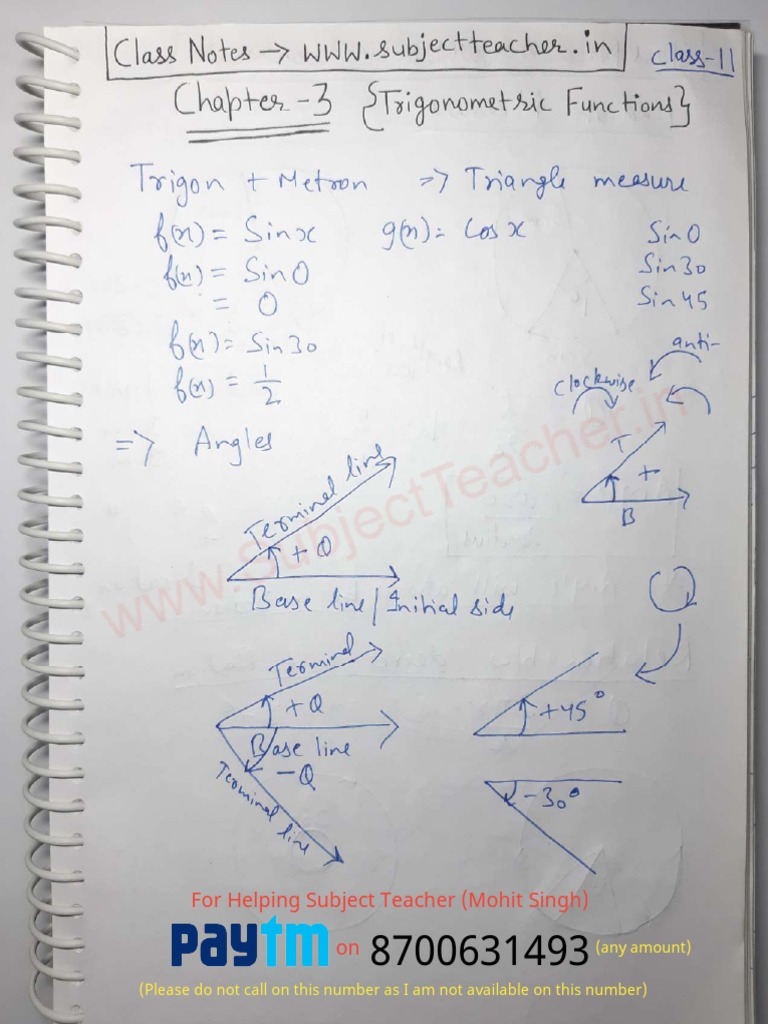 Class Notes → www.subjectteacher.in
Class-11
Chapter-3 {Trigonometric Functions}
Trigon + Metron => Triangle measure
f(x) = Sinx g(x) = Cos x Sin 0
f(x) = Sin 0 Sin 30
= 0 Sin 45
f(x) = Sin 30
f(x) = 1/2
anti-
clockwise
=> Angles
Terminal line
+ θ
Base line / Initial side
T
+
B
Terminal
+ θ
Base line
- θ
Terminal line
+45°
-30°
www.SubjectTeacher.in
For Helping Subject Teacher (Mohit Singh)
paytm on 8700631493 (any amount)
(Please do not call on this number as I am not available on this number)